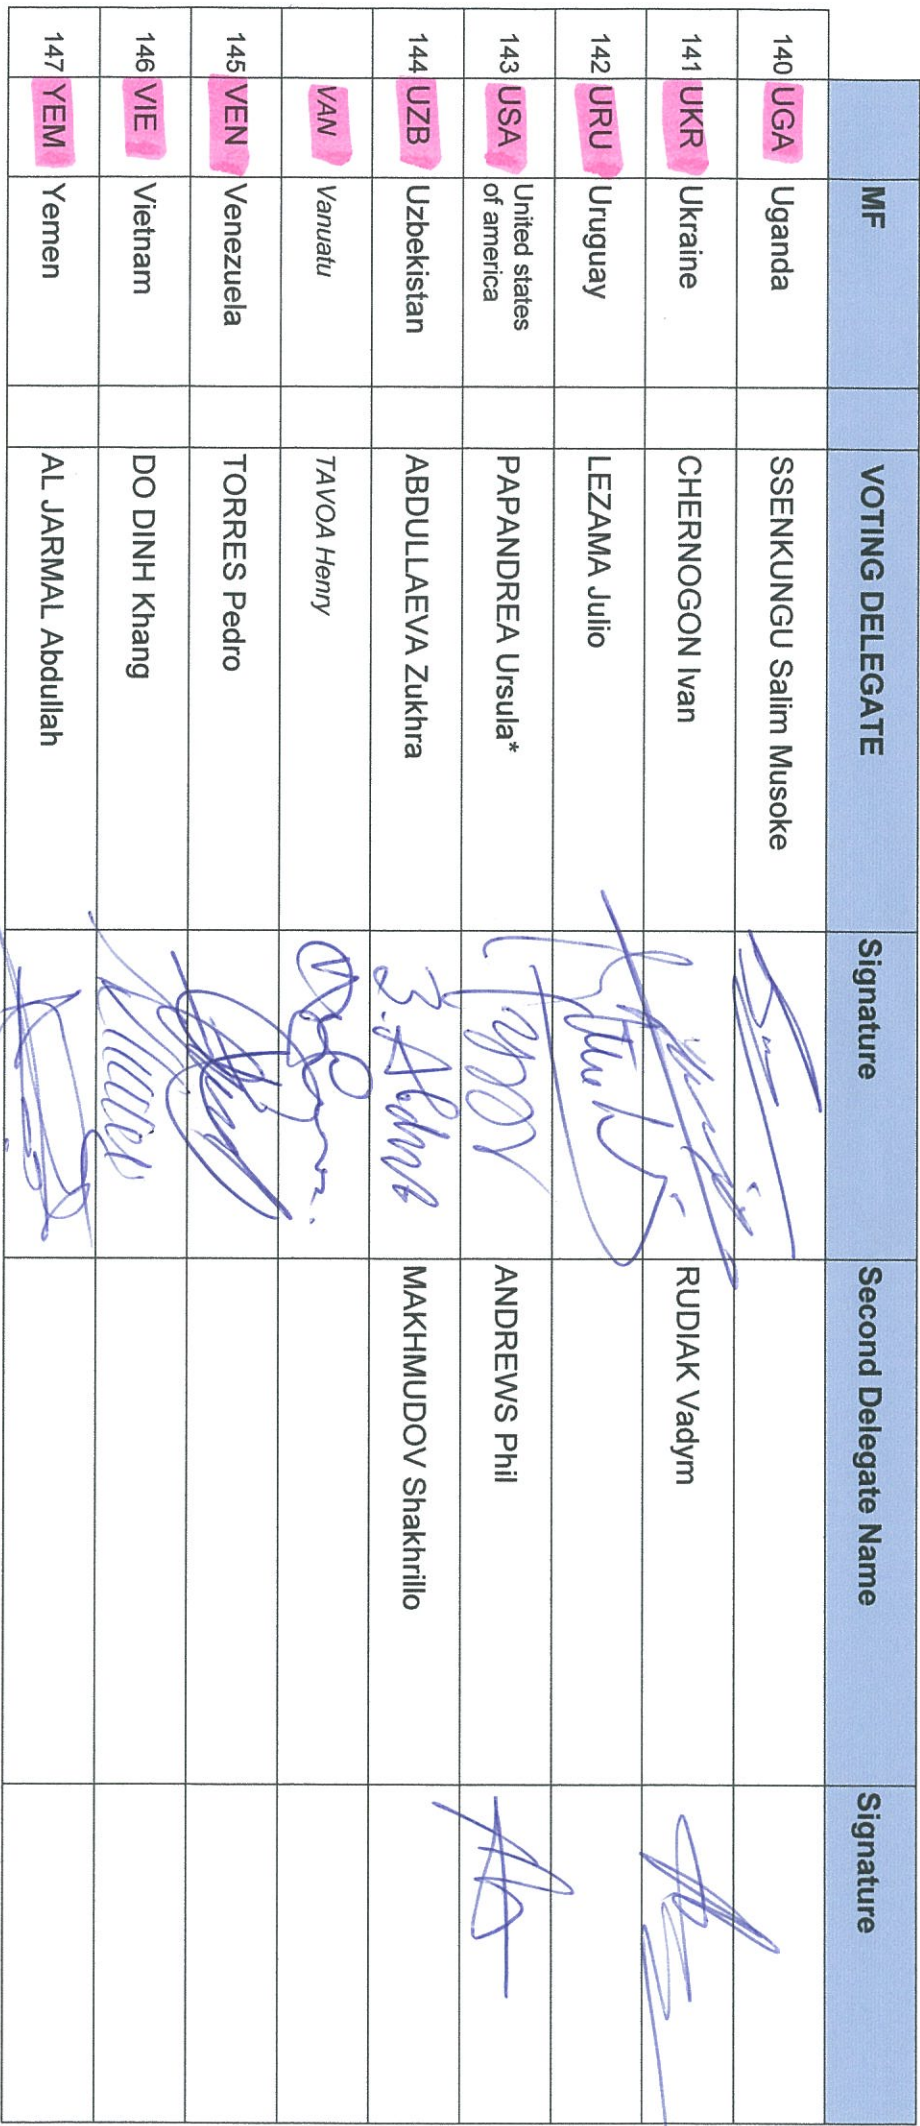 MF VOTING DELEGATE Signature Second Delegate Name Signature
140 UGA Uganda SSENKUNGU Salim Musoke
141 UKR Ukraine CHERNOGON Ivan RUDIAK Vadym
142 URU Uruguay LEZAMA Julio
143 USA United states
of america PAPANDREA Ursula* ANDREWS Phil
144 UZB Uzbekistan ABDULLAEVA Zukhra MAKHMUDOV Shakhrillo
VAN Vanuatu TAVOA Henry
145 VEN Venezuela TORRES Pedro
146 VIE Vietnam DO DINH Khang
147 YEM Yemen AL JARMAL Abdullah